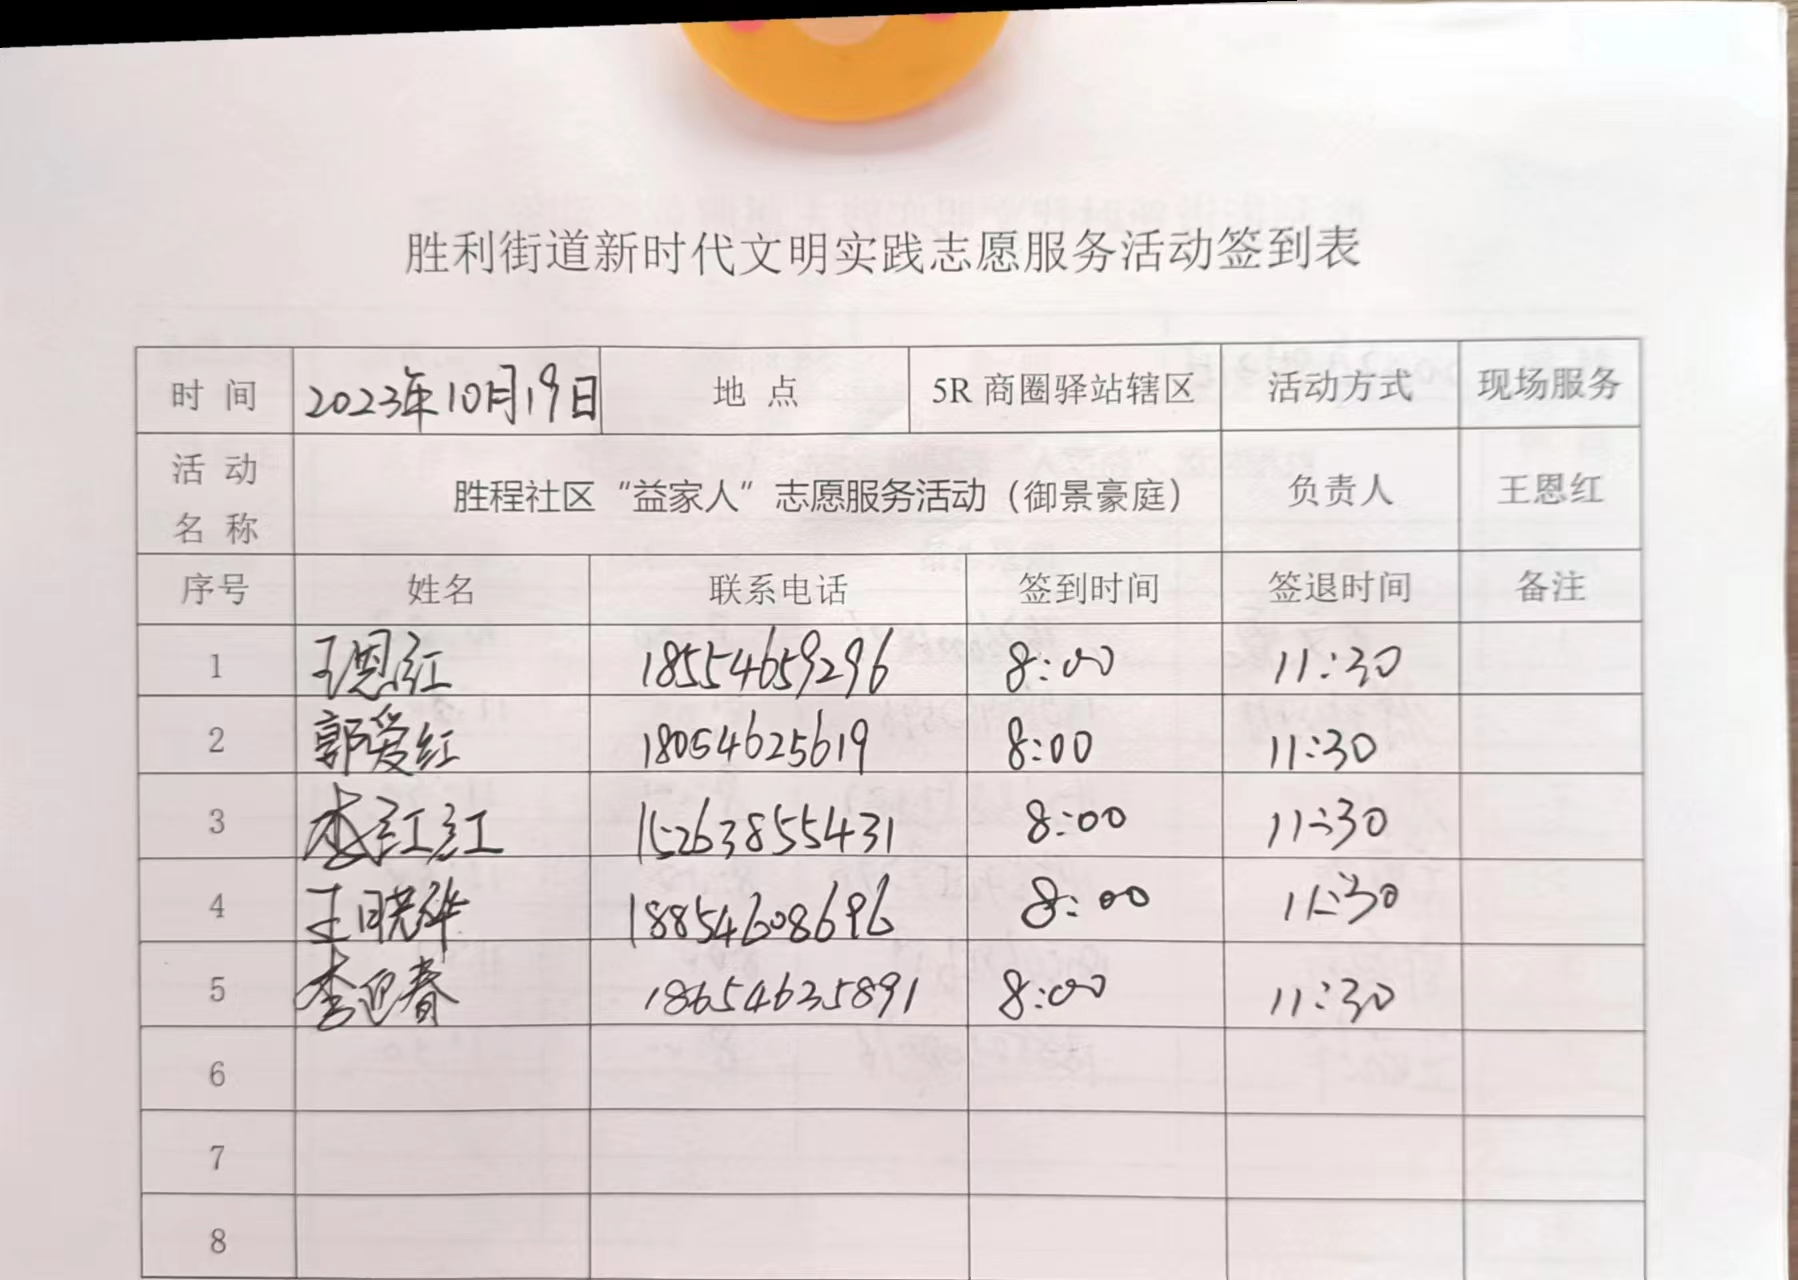 胜利街道新时代文明实践志愿服务活动签到表
时间 2023年10月19日 地点 5R商圈驿站辖区 活动方式 现场服务
活动名称 胜程社区“益家人”志愿服务活动（御景豪庭） 负责人 王恩红
序号 姓名 联系电话 签到时间 签退时间 备注
1 王恩红 18554659296 8:00 11:30
2 郭爱红 18054625619 8:00 11:30
3 李红红 15263855431 8:00 11:30
4 王晓华 18854608696 8:00 11:30
5 李迎春 18654635891 8:00 11:30
6
7
8